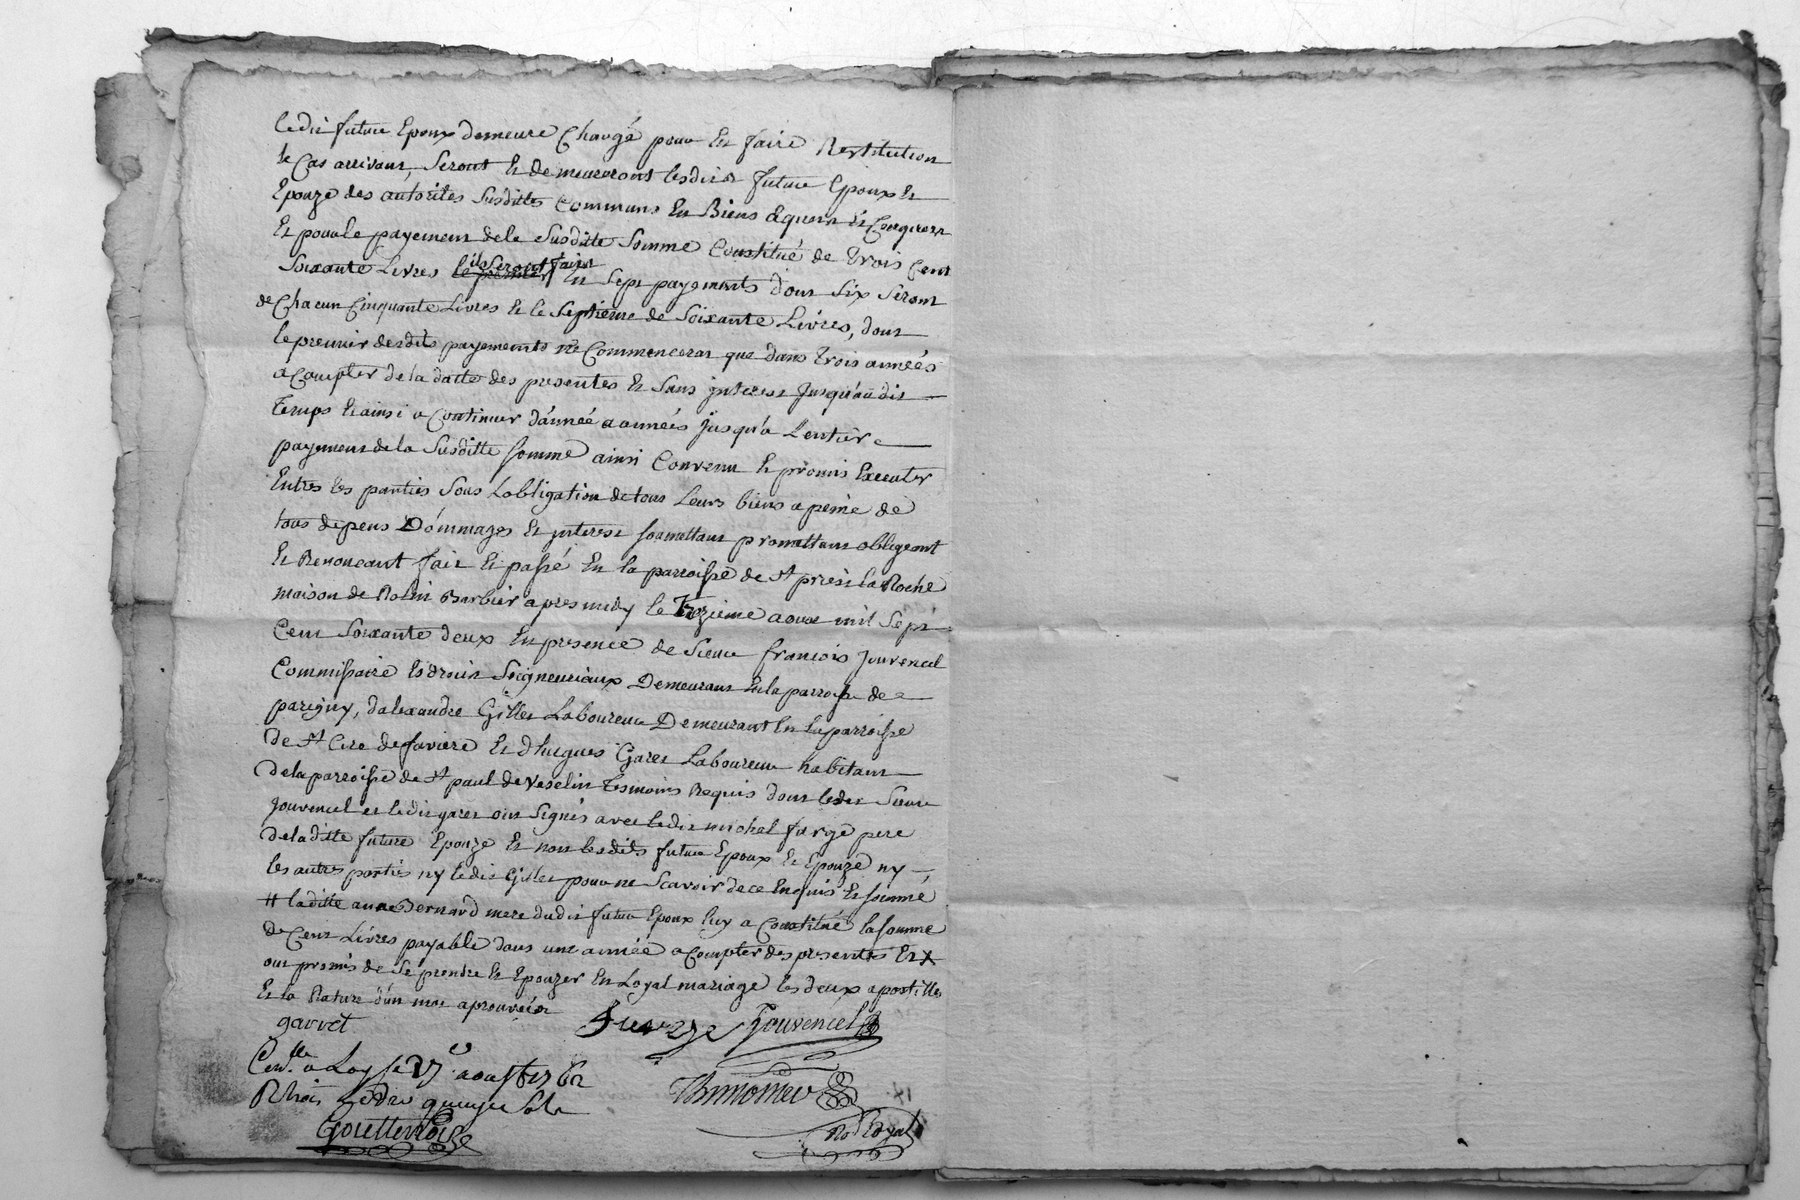 ledit futur Epoux demeure Chargé pour En faire Restitution
le Cas arrivant, Seront Et demeureront lesdits futur Epoux Et
Epouze des autorites Susdittes Communs En Biens acquets Et Conquets
Et pour le payement de la Susditte Somme Constitué de trois Cent
Soixante Livres ils Seront faits En Sept payements dont Six Seront
de Chacun Cinquante Livres Et le Septieme de Soixante Livres, dont
le premier desdits payements ne Commencerat que dans trois années
a Compter de la datte des presentes Et Sans jnterest jusqu'audit
temps Et ainsi a Continuer d'année a années jusqu'a L'entiere
payement de la Susditte somme ainsi Convenu Et promis Executer
Entres les parties Sous L'obligation de tous Leurs biens a peine de
tous depens Dommages Et jnterest soumettant promettant obligeant
Et Renonceant fait Et passé En la parroisse de St priest la Roche
maison de Barbier apres midy le Trezieme aout mil Sept
Cent Soixante deux En presence de Sieur françois Jouvencel
Commissaire Es droits Seigneuriaux Demeurant En la parroisse de
parigny, d'alexandre Gilles Laboureur Demeurant En la parroisse
de St Cire de faviere Et d'hugues Garet Laboureur habitant
de la parroisse de St paul de Vezelin Tesmoins Requis dont ledit Sieur
Jouvencel et ledit garet ont Signés avec ledit michel farge pere
de la ditte future Epouze Et non lesdits futur Epoux Et Epouze ny
les autres parties ny ledit Gilles pour ne Scavoir de ce Enquis Et sommé
# laditte anne Bernard mere dudit futur Epoux luy a Constitué la somme
de Cent Livres payable dans une année a Compter des presentes Et X
ont promis de Se prendre Et Epouzer En Loyal mariage les deux apostilles
Et la Rature d'un mot aprouvées
garret Jouvencel
Con.lle a Lay le 27 aoust 1762
Goutterloise
No Royal